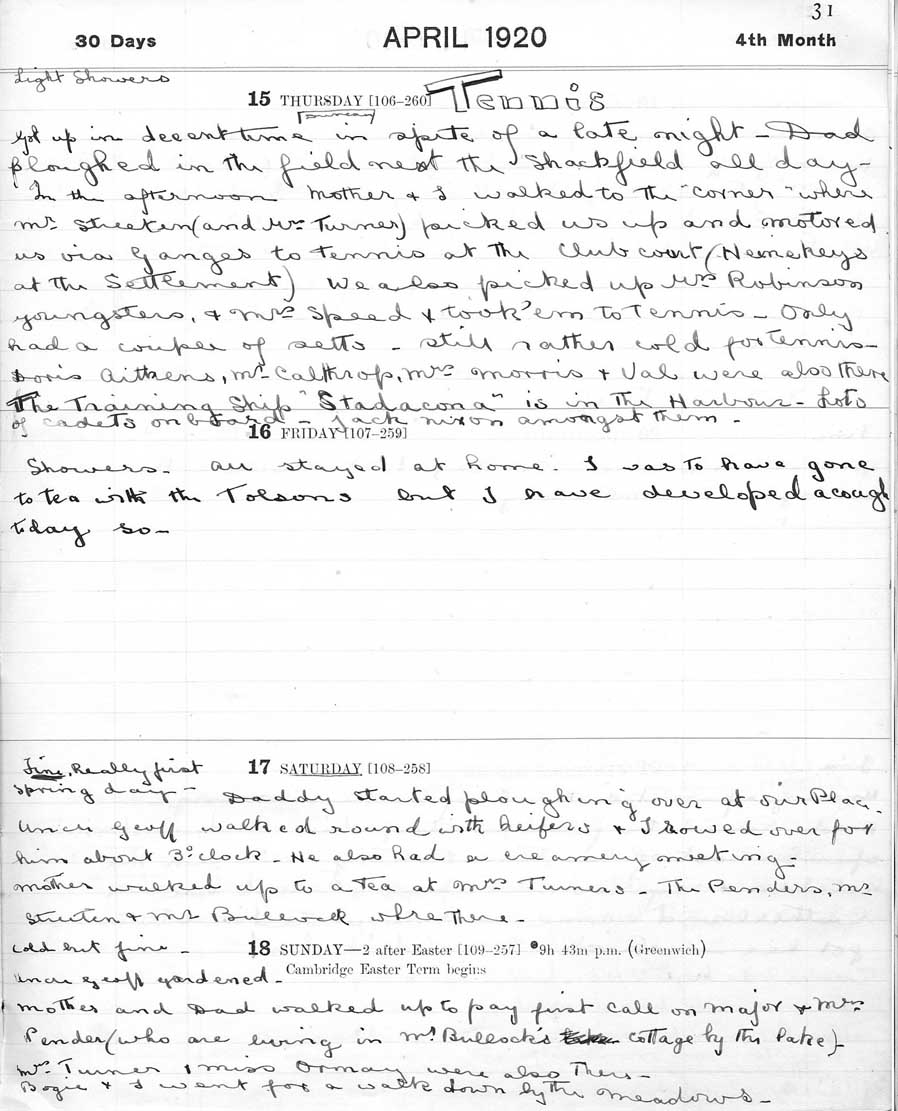 31
30 Days APRIL 1920 4th Month
Light Showers
15 THURSDAY [106–260] Tennis
Got up in decent time in spite of a late night – Dad
ploughed in the field next the Shackfield all day –
In the afternoon Mother & I walked to the "corner" where
Mr Streeten (and Mrs Turner) picked us up and motored
us via Ganges to tennis at the Club court (Nemekeys
at the Settlement) We also picked up Mrs Robinson
youngsters, & Mrs Speed & took 'em to Tennis – Only
had a couple of setts – still rather cold for tennis –
Doris Aitkens, Mr Calthrop, Mrs Morris & Val were also there
The Training Ship "Stadacona" is in The Harbour – Lots
of cadets on board – Jack Nixon amongst them –
16 FRIDAY [107–259]
Showers – All stayed at home. I was to have gone
to tea with the Tolsons but I have developed a cough
today so –
Fine, Really first 17 SATURDAY [108–258]
spring day – Daddy started ploughing over at our Place.
Uncle Geoff walked round with heifers & I rowed over for
him about 3 o'clock – He also had a creamery meeting –
Mother walked up to a tea at Mrs Turners – The Penders, Mr
Streeten & Mr Bullock where there –
Cold but fine – 18 SUNDAY—2 after Easter [109–257] ●9h 43m p.m. (Greenwich)
Cambridge Easter Term begins
Uncle Geoff gardened –
Mother and Dad walked up to pay first call on Major & Mrs
Pender (who are living in Mr Bullock's cottage by the lake)
Mrs Turner & Miss Ormay were also There –
Bogie & I went for a walk down by the meadows –